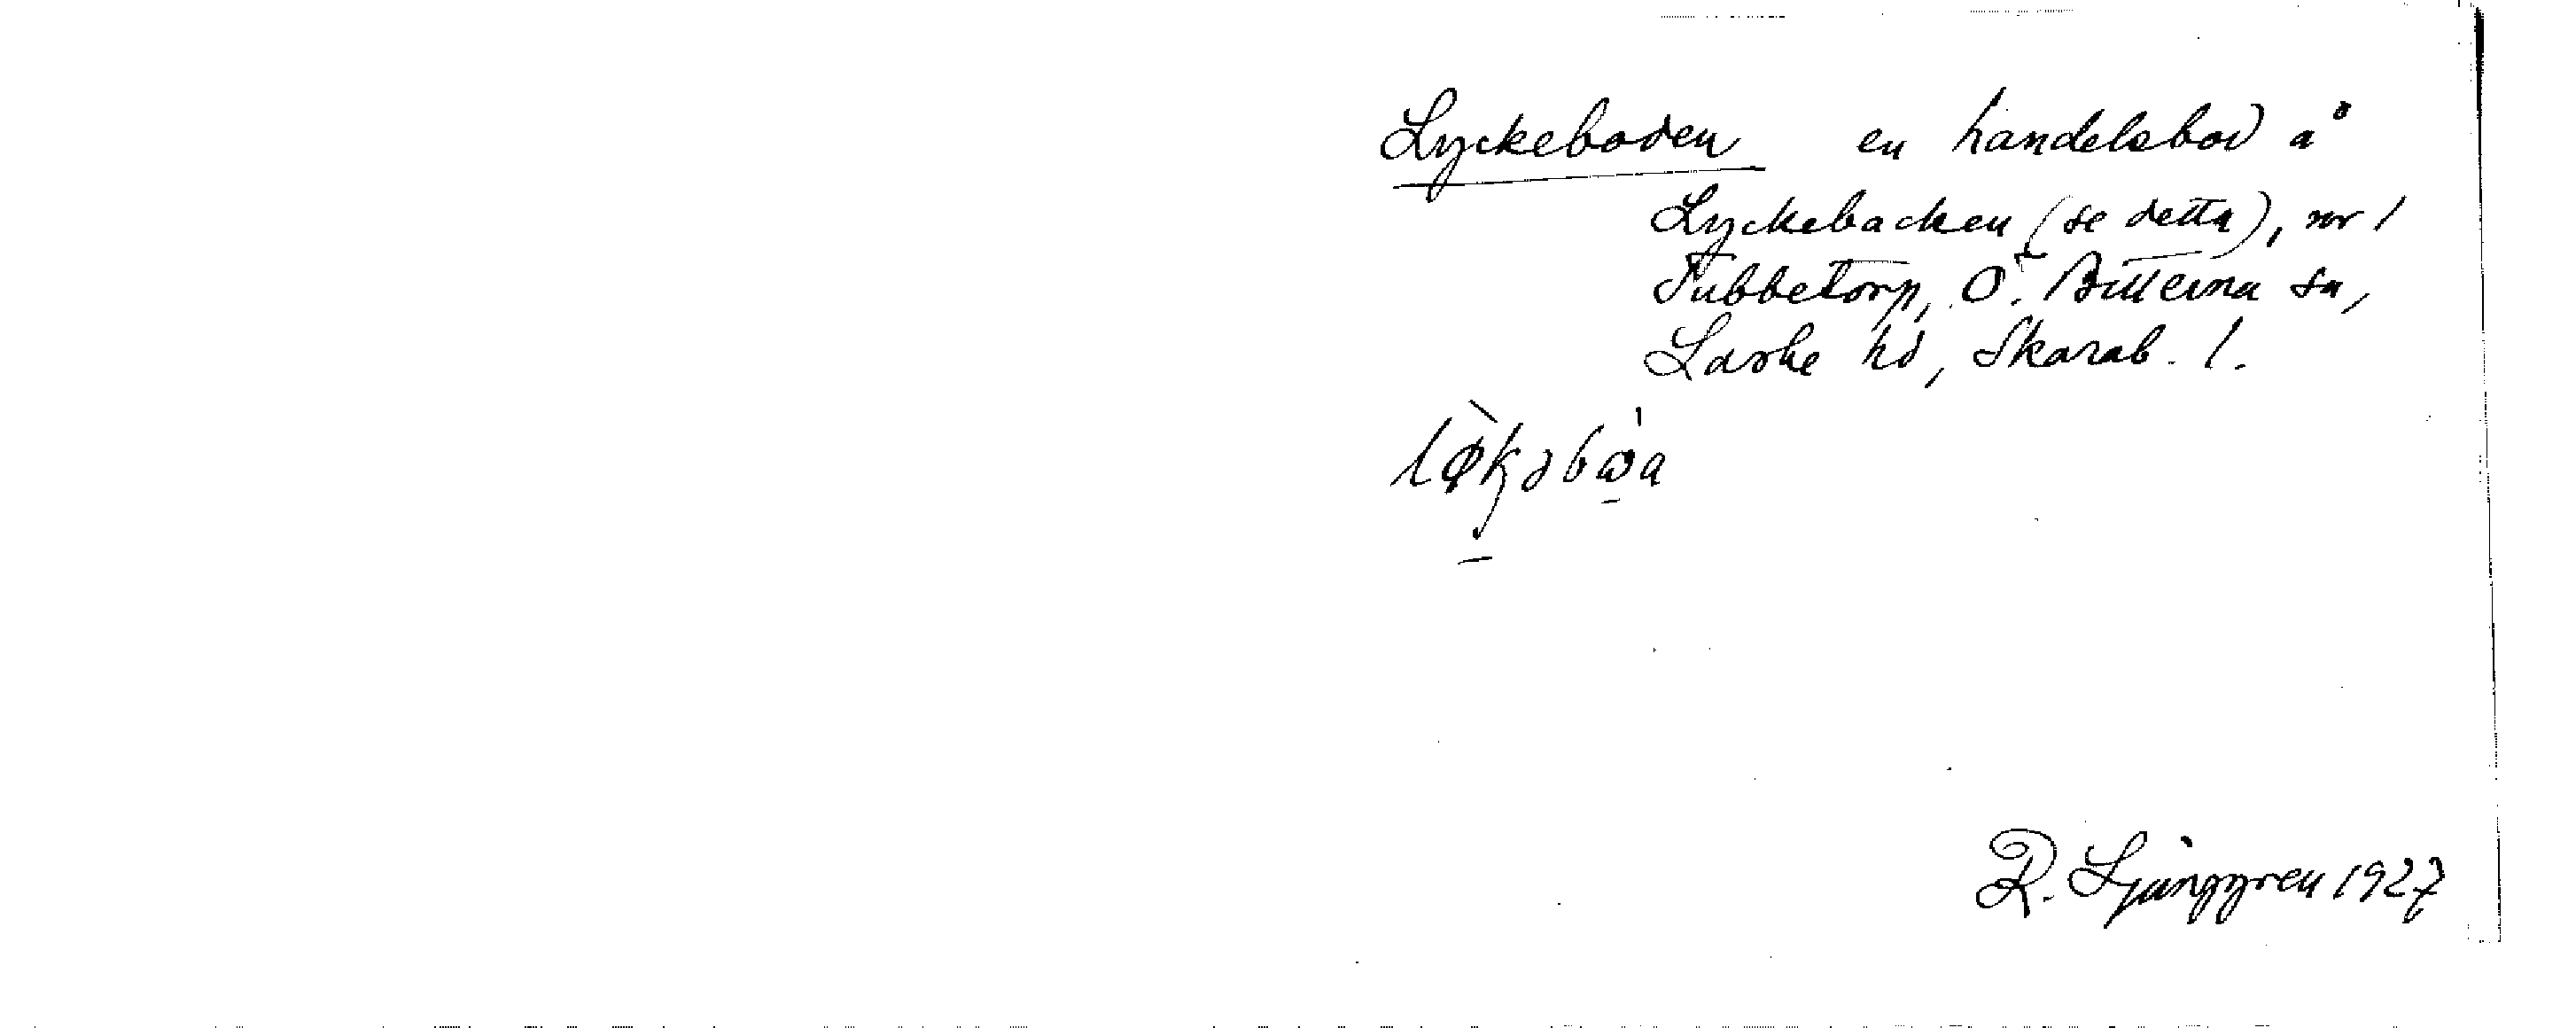 Lyckeboden en handelsbod å
Lyckebacken (se detta), nr 1
Tubbetorp, Ö. Bitterna sn,
Laske hd, Skarab. l.
R. Ljunggren 1927